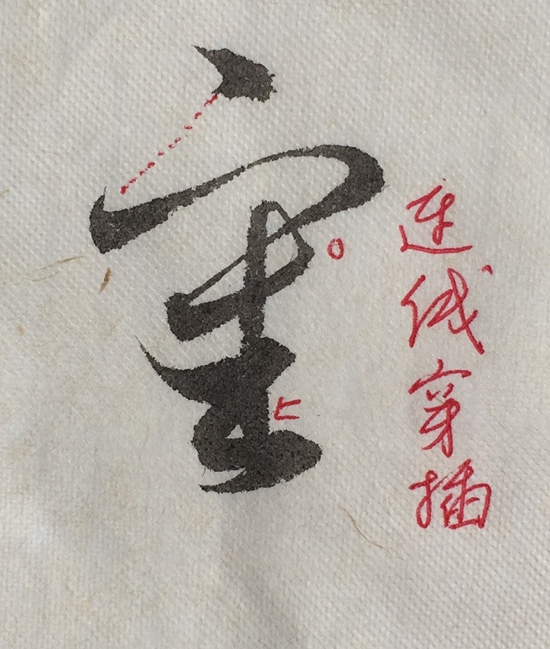 连线穿插